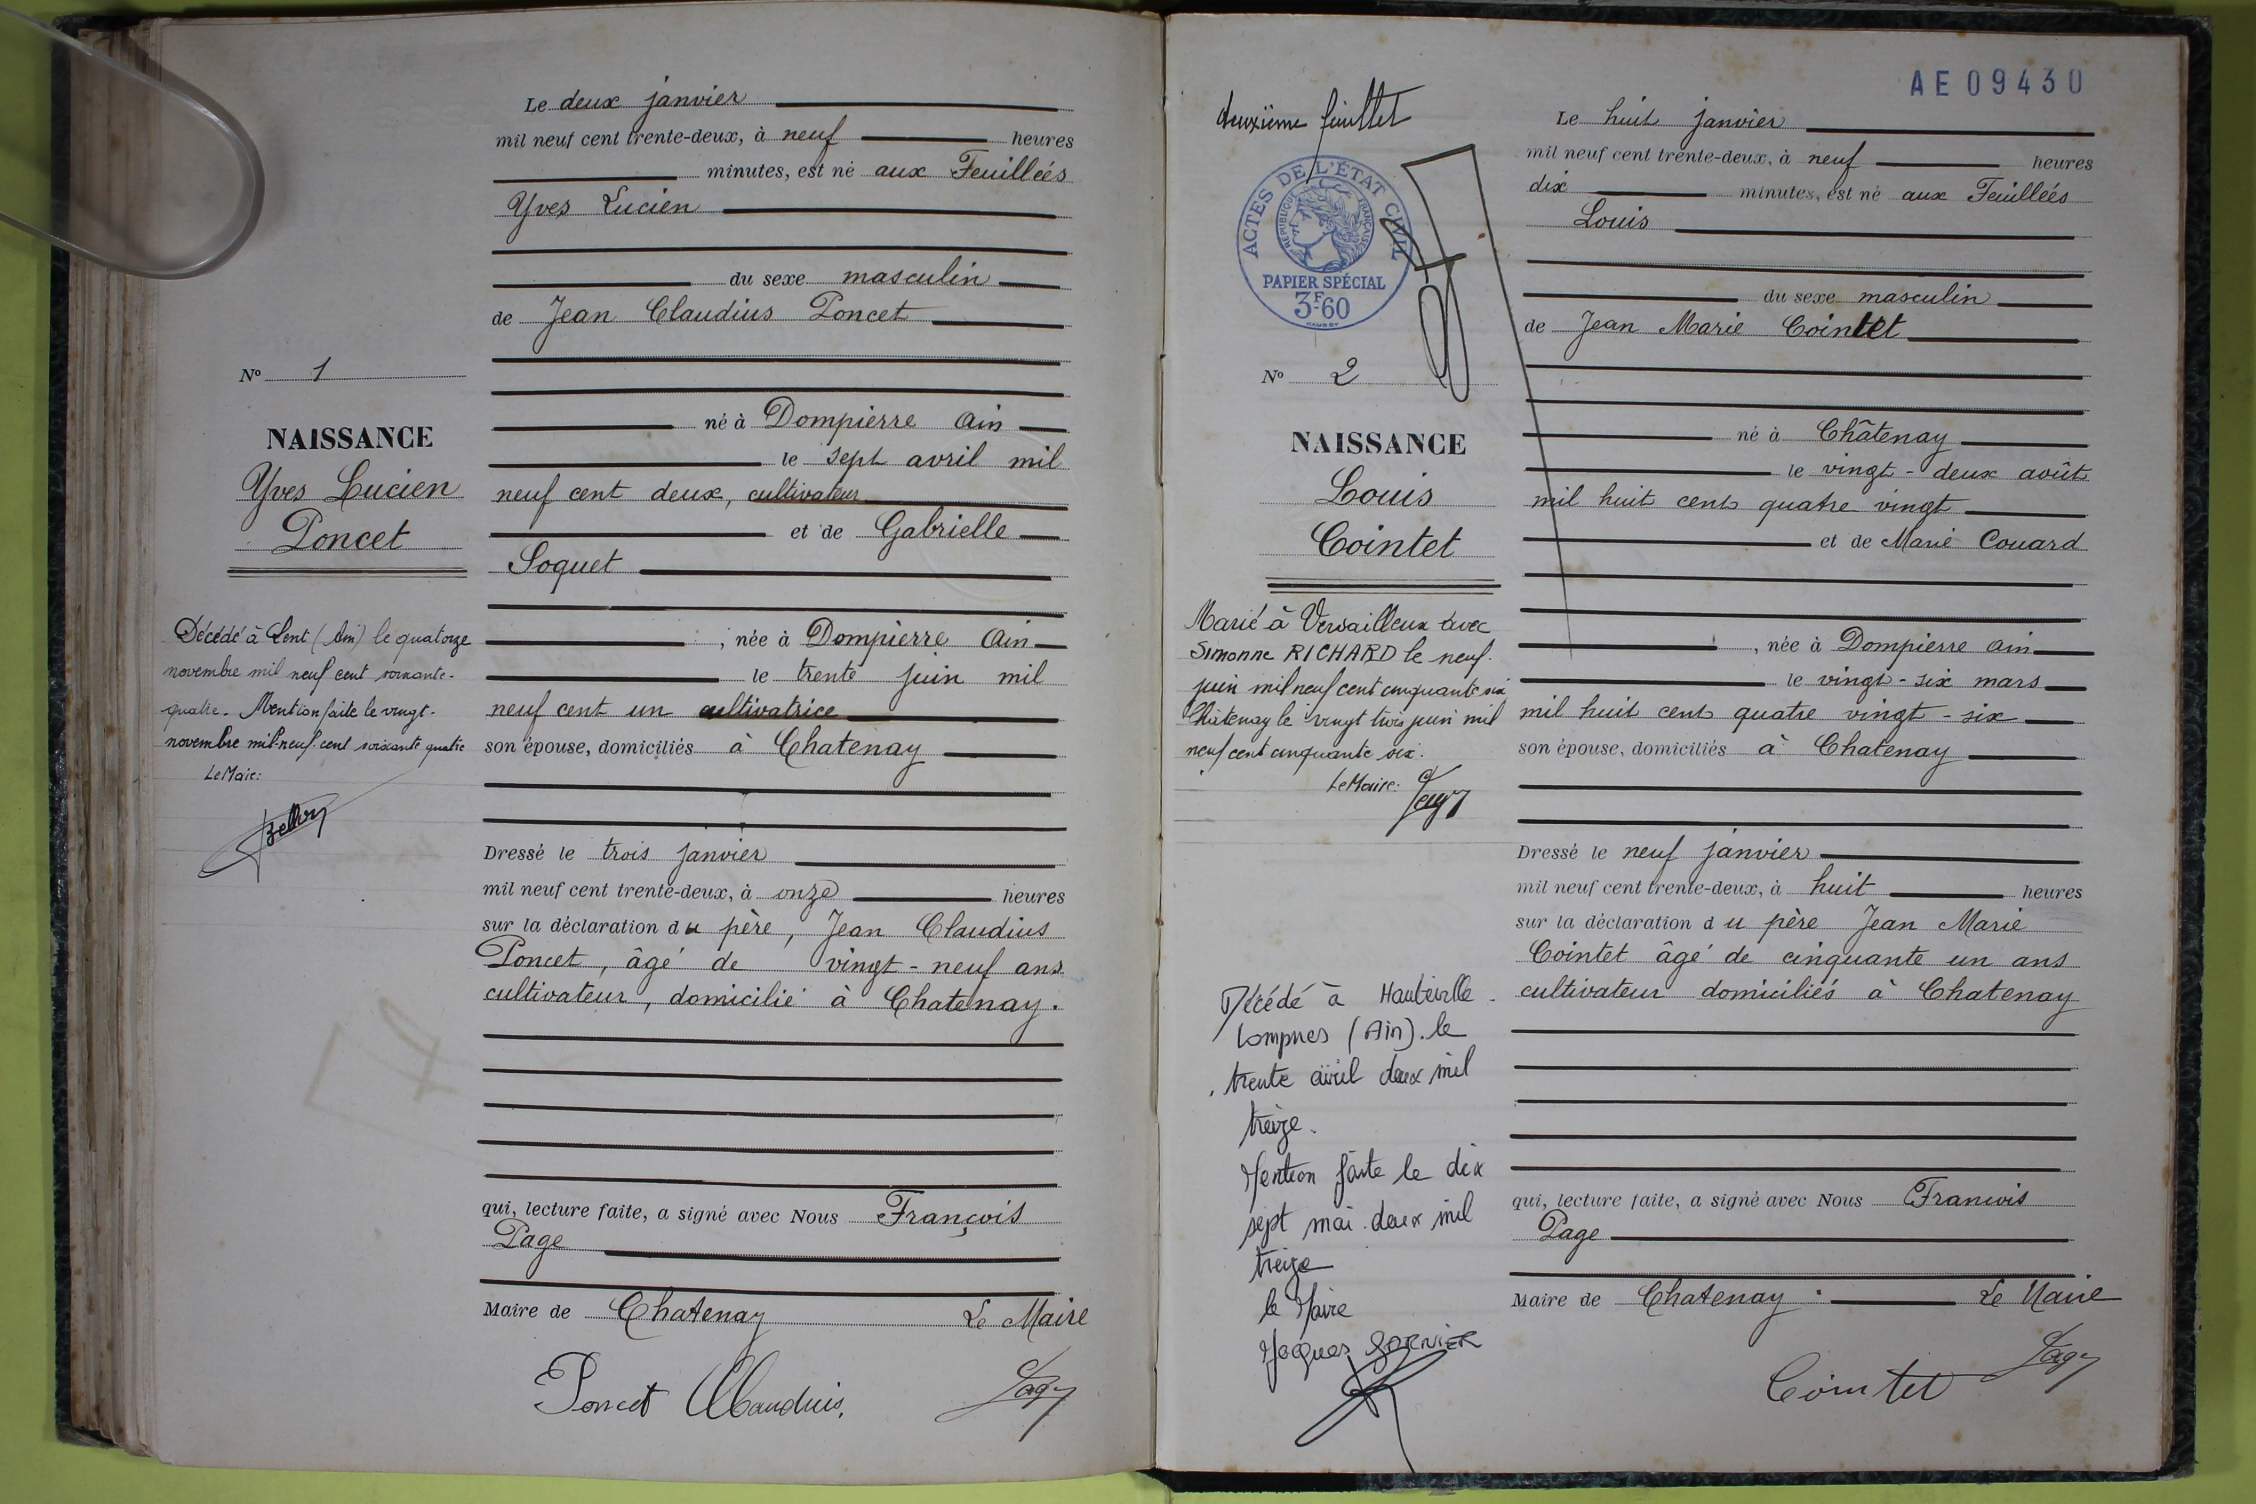 Le deux janvier
mil neuf cent trente-deux, à neuf heures
minutes, est né aux Feuilleés
Yves Lucien
du sexe masculin
de Jean Claudius Poncet
né à Dompierre Ain
le sept avril mil
neuf cent deux, cultivateur
et de Gabrielle
Soquet
, née à Dompierre Ain
le trente juin mil
neuf cent un cultivatrice
son épouse, domiciliés à Chatenay
Dressé le trois janvier
mil neuf cent trente-deux, à onze heures
sur la déclaration du père, Jean Claudius
Poncet, âgé de vingt-neuf ans
cultivateur, domicilié à Chatenay.
qui, lecture faite, a signé avec Nous François
Page
Maire de Chatenay Le Maire
Poncet Claudius.
Page
No 1
NAISSANCE
Yves Lucien
Poncet
Décédé à Lent (Ain) le quatorze
novembre mil neuf cent soixante-
quatre. Mention faite le vingt-
novembre mil-neuf-cent soixante quatre
Le Maire:
AE09430
deuxième feuillet
ACTES DE L'ÉTAT CIVIL
RÉPUBLIQUE FRANÇAISE
PAPIER SPÉCIAL
3F60
No 2
NAISSANCE
Louis
Cointet
Marié à Versailleux avec
Simonne RICHARD le neuf
juin mil neuf cent cinquante six
Châtenay le vingt trois juin mil
neuf cent cinquante six.
Le Maire: Page
Décédé à Hauteville
Lompnes (Ain). le
trente avril deux mil
treize.
Mention faite le dix
sept mai deux mil
treize
le Maire
Jacques
Le huit janvier
mil neuf cent trente-deux, à neuf heures
dix minutes, est né aux Feuilleés
Louis
du sexe masculin
de Jean Marie Cointet
né à Châtenay
le vingt-deux août
mil huit cent quatre vingt
et de Marie Couard
, née à Dompierre Ain
le vingt-six mars
mil huit cent quatre vingt-six
son épouse, domiciliés à Chatenay
Dressé le neuf janvier
mil neuf cent trente-deux, à huit heures
sur la déclaration du père Jean Marie
Cointet âgé de cinquante un ans
cultivateur domiciliés à Chatenay
qui, lecture faite, a signé avec Nous Francois
Page
Maire de Chatenay. Le Maire
Cointet
Page